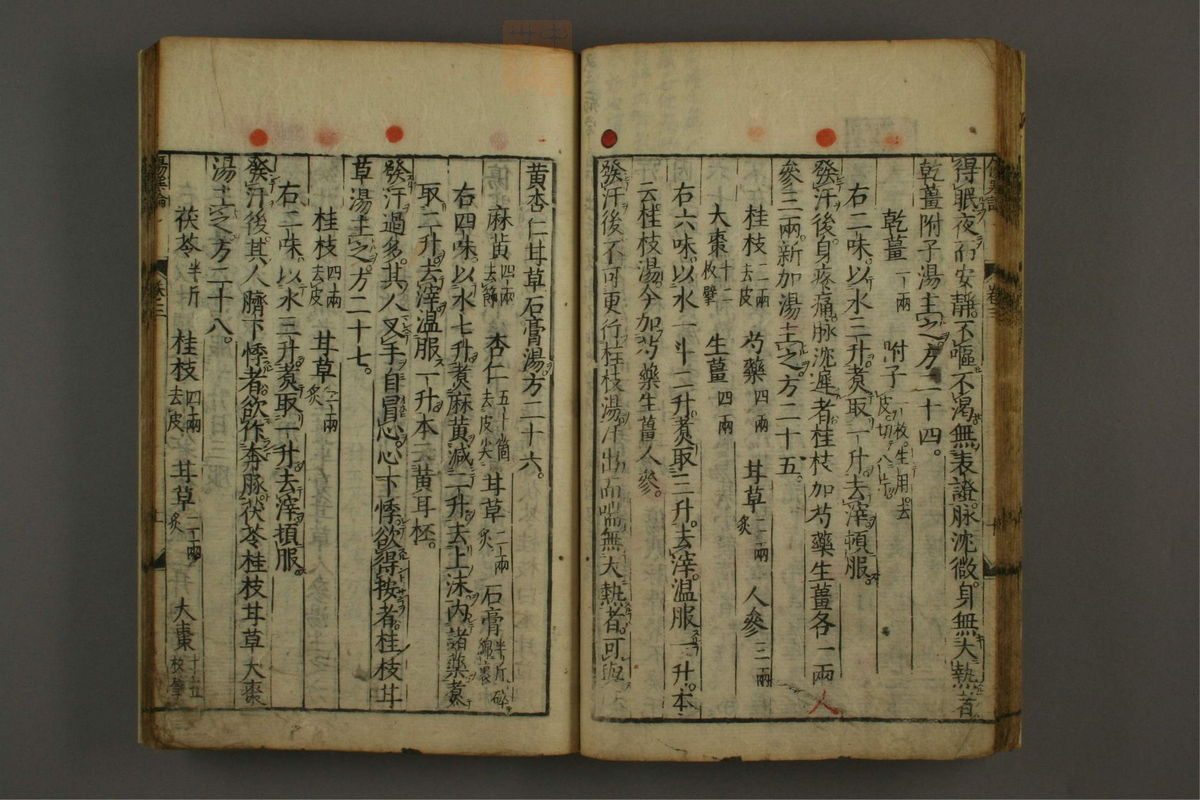 得眠夜而安靜不嘔不渴無表證脉沈微身無大熱者
乾薑附子湯主之方二十四。
乾薑一兩 附子一枚生用去皮切八片
右二味以水三升煮取一升去滓頓服
發汗後身疼痛脉沈遲者桂枝加芍藥生薑各一兩人
參三兩新加湯主之方二十五。
桂枝三兩去皮 芍藥四兩 甘草二兩炙 人參三兩
大棗十二枚擘 生薑四兩
右六味以水一斗二升煮取三升去滓溫服一升本
云桂枝湯今加芍藥生薑人參。
發汗後不可更行桂枝湯汗出而喘無大熱者可與
黃杏仁甘草石膏湯方二十六。
麻黃四兩去節 杏仁五十箇去皮尖 甘草二兩炙 石膏半斤碎綿裹
右四味以水七升煮麻黃減二升去上沫內諸藥煮
取二升去滓溫服一升本云黃耳柸。
發汗過多其人叉手自冒心心下悸欲得按者桂枝甘
草湯主之方二十七。
桂枝四兩去皮 甘草二兩炙
右二味以水三升煮取一升去滓頓服。
發汗後其人臍下悸者欲作奔豚茯苓桂枝甘草大棗
湯主之方二十八。
茯苓半斤 桂枝四兩去皮 甘草二兩炙 大棗十五枚擘
傷寒論
卷三